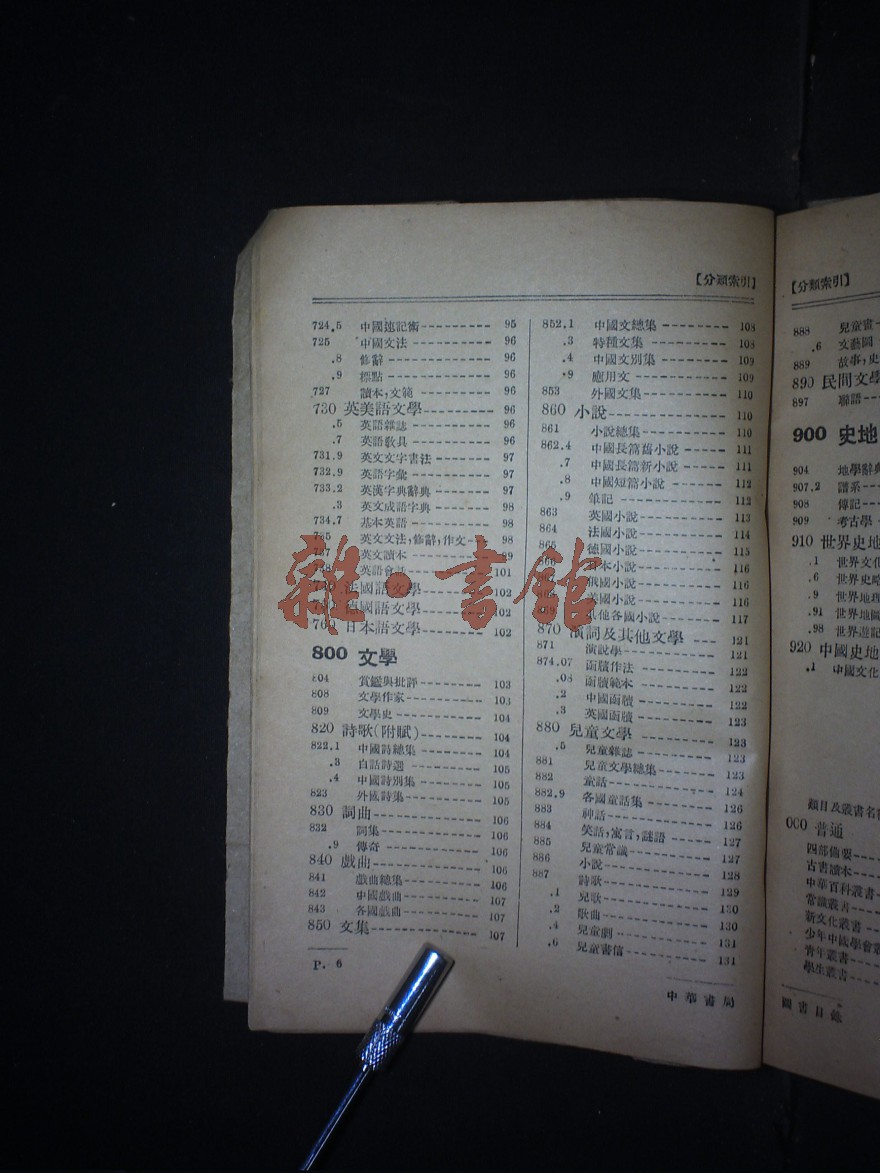 【分類索引】
724.5 中國速記術 95
725 中國文法 96
.8 修辭 96
.9 標點 96
727 讀本,文範 96
730 英美語文學 96
.5 英語雜誌 96
.7 英語敎具 96
731.9 英文文字書法 97
732.9 英語字彙 97
733.2 英漢字典辭典 97
.3 英文成語字典 98
734.7 基本英語 98
735 英文文法,修辭,作文 98
737 英文讀本 99
738 英語會話 101
740 法國語文學 102
750 德國語文學 102
760 日本語文學 102
800 文學
804 賞鑑與批評 103
808 文學作家 103
809 文學史 104
820 詩歌(附賦) 104
822.1 中國詩總集 104
.3 白話詩選 105
.4 中國詩別集 105
823 外國詩集 105
830 詞曲 106
832 詞集 106
.9 傳奇 106
840 戲曲 106
841 戲曲總集 106
842 中國戲曲 107
843 各國戲曲 107
850 文集 107
852.1 中國文總集 108
.3 特種文集 108
.4 中國文別集 109
.9 應用文 109
853 外國文集 110
860 小說 110
861 小說總集 110
862.4 中國長篇舊小說 111
.7 中國長篇新小說 111
.8 中國短篇小說 112
.9 筆記 112
863 英國小說 113
864 法國小說 114
865 德國小說 115
866 日本小說 116
俄國小說 116
美國小說 116
869 其他各國小說 117
870 演詞及其他文學 121
871 演說學 121
874.07 函牘作法 122
.08 函牘範本 122
.2 中國函牘 122
.3 英國函牘 123
880 兒童文學 123
.5 兒童雜誌 123
881 兒童文學總集 123
882 童話 124
882.9 各國童話集 126
883 神話 126
884 笑話,寓言,謎語 127
885 兒童常識 127
886 小說 128
887 詩歌 129
.1 兒歌 130
.2 歌曲 130
.4 兒童劇 131
.6 兒童書信 131
P. 6
中華書局
【分類索引】
888 兒童畫
.6 文藝圖
889 故事,史
890 民間文學
897 聯語
900 史地
904 地學辭典
907.2 譜系
908 傳記
909 考古學
910 世界史地
.1 世界文化
.6 世界史略
.9 世界地理
.91 世界地圖
.98 世界遊記
920 中國史地
.1 中國文化
類目及叢書名
000 普通
四部備要
古書讀本
中華百科叢書
常識叢書
新文化叢書
少年中國學會叢
青年叢書
學生叢書
圖書目錄
雜·書館